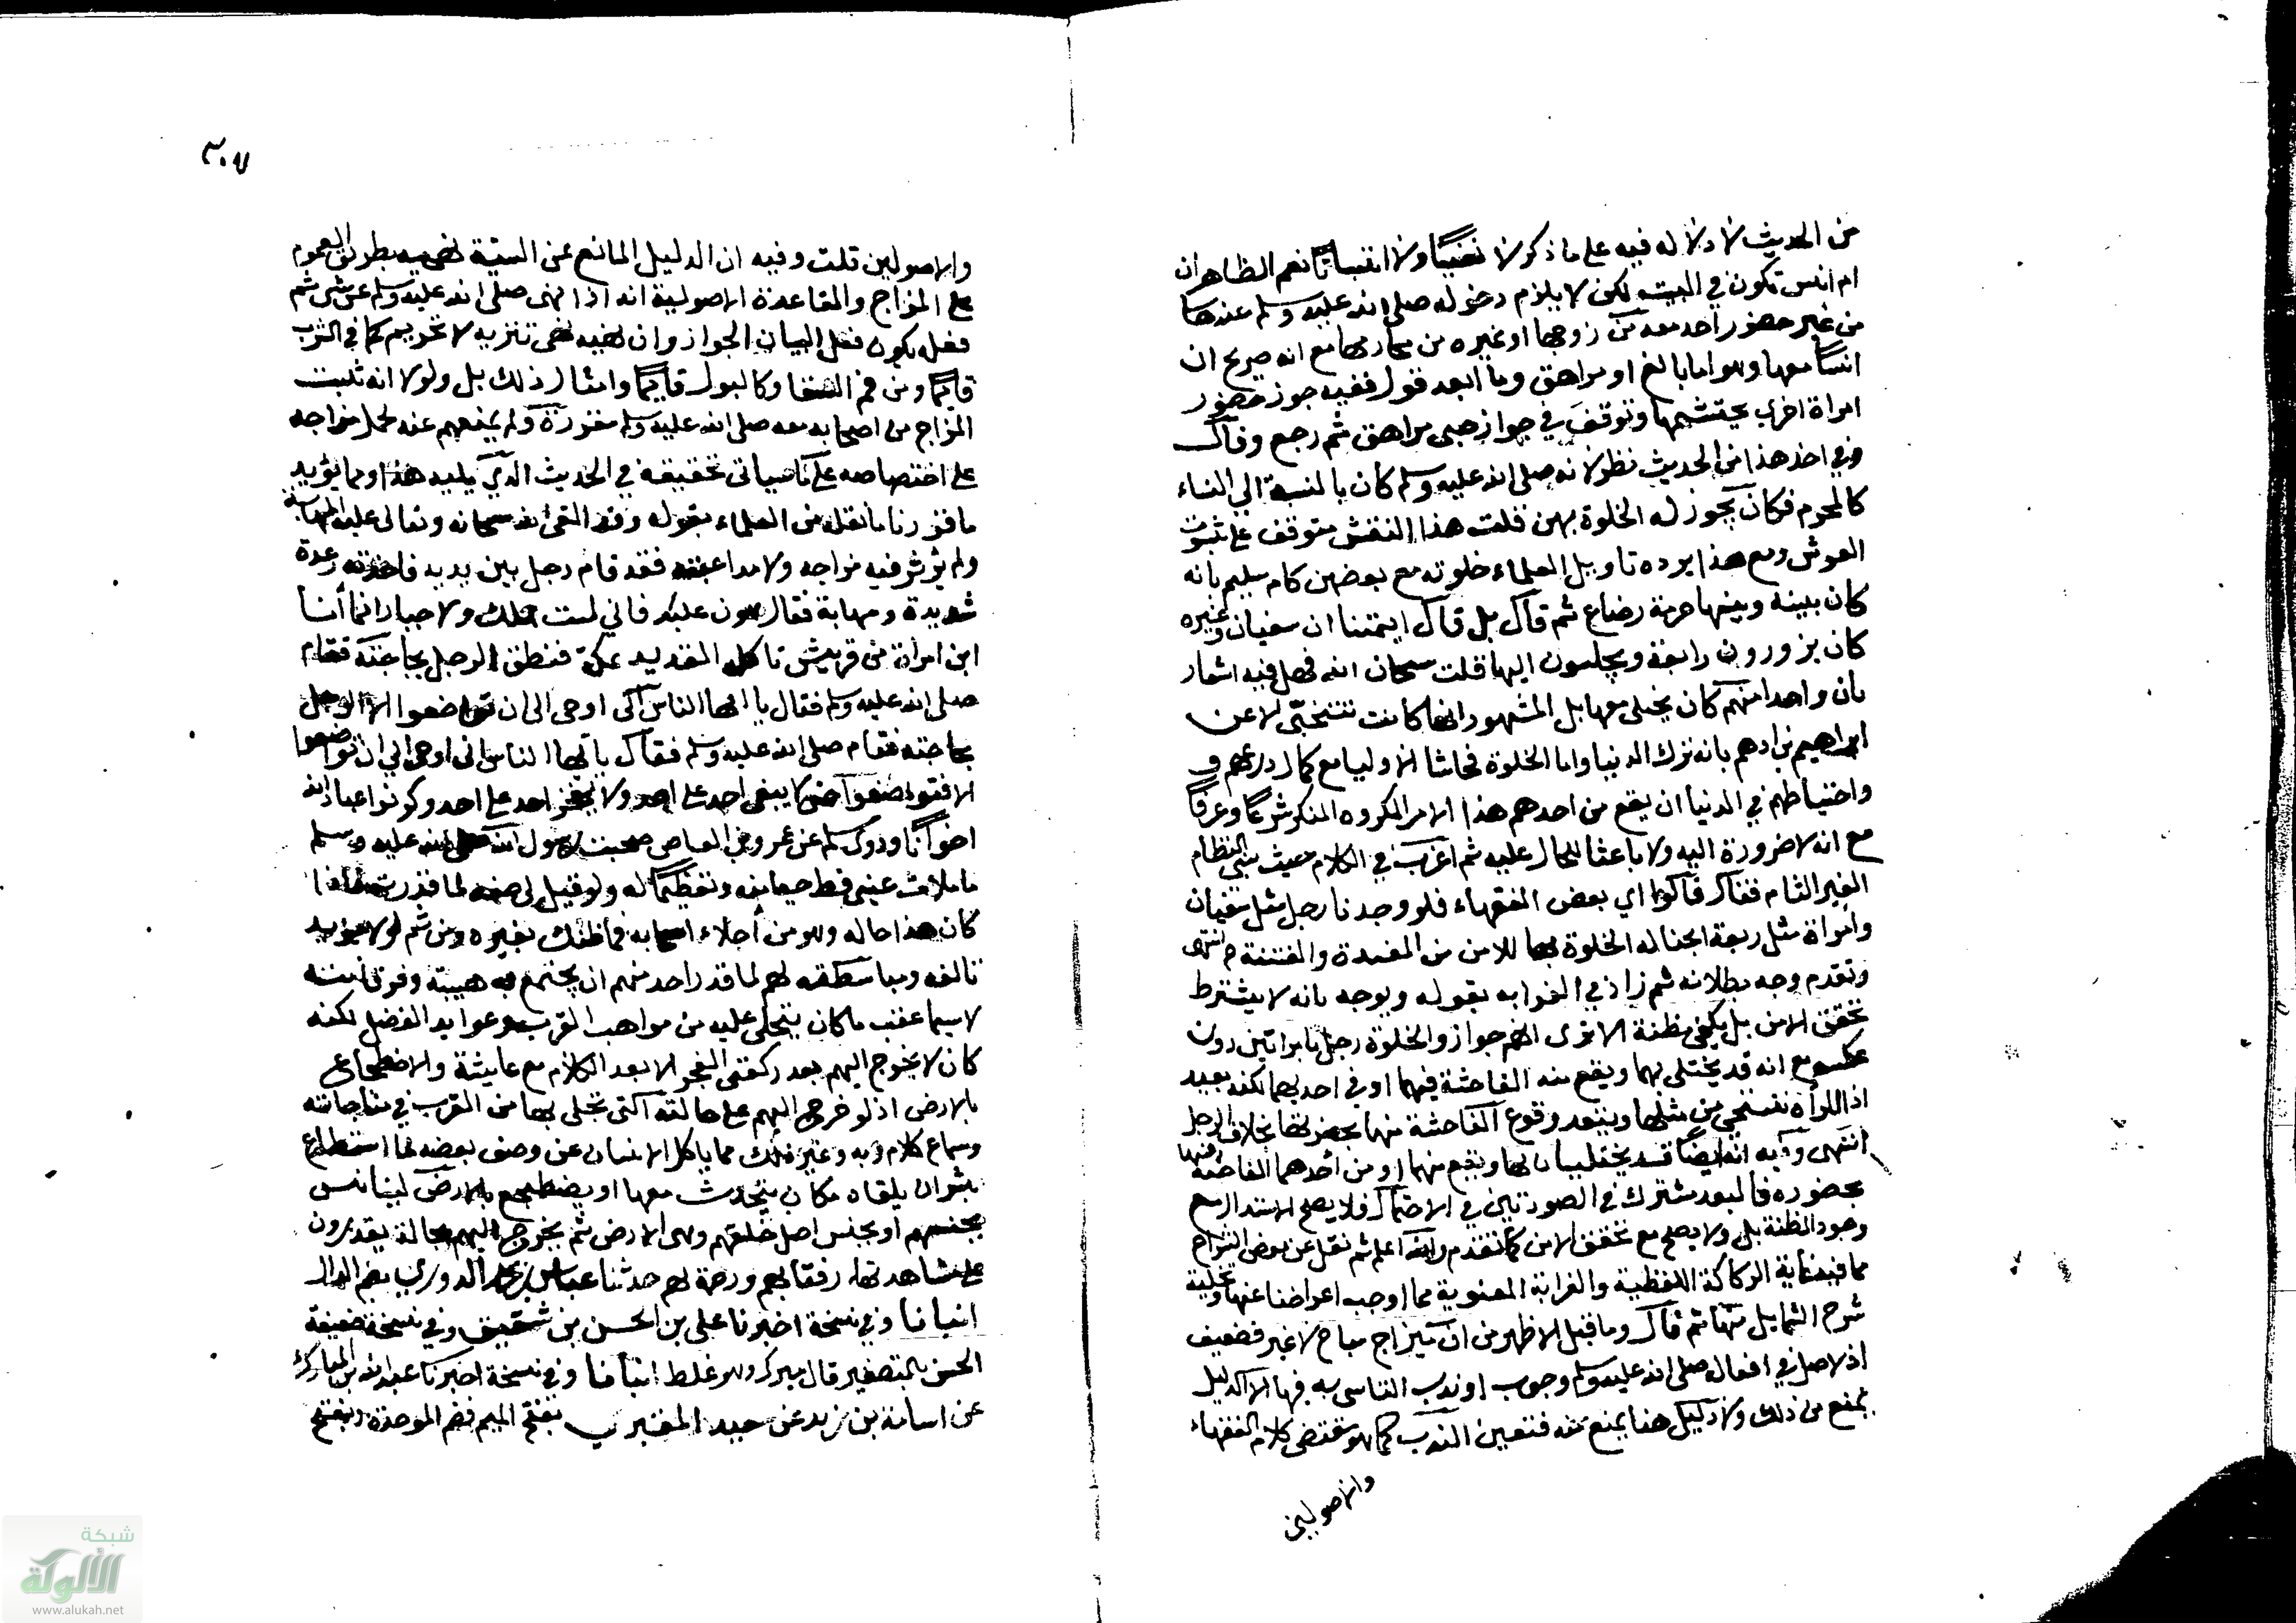 من الحديث لا دلالة فيه على ما ذكر لا نفيا ولا اثباتا نعم الظاهر ان
ام انس تكون في البيت لكن لا يلزم دخوله صلى الله عليه وسلم عندها
من غير حضور احد معه من زوجها او غيره من محارمها مع انه صريح ان
انسا معها وهو اما بالغ او مراهق وما ابعد قول فقيه جوز حضور
امراة اخرى يحتشمها وتوقف في جواز صبي مراهق ثم رجع وقال
وفي اخذ هذا من الحديث نظر لانه صلى الله عليه وسلم كان بالنسبة الى النساء
كالمحرم فكان يجوز له الخلوة بهن قلت هذا النقش متوقف على ثبوت
العرش ومع هذا يرده تاويل العلماء خلوته مع بعضهن كام سليم بانه
كان بينه وبينها حرمة رضاع ثم قال بل قال ايمتنا ان سفيان وغيره
كان يزورون رابعة ويجلسون اليها قلت سبحان الله فهل فيه اشعار
بان واحدا منهم كان يختلي معها بل المشهور انها كانت تستخبي لا عن
ابراهيم بن ادهم بانه ترك الدنيا واما الخلوة فحاشا الاوليا مع كمال ورعهم و
واحتياطهم في الدنيا ان يقع من احدهم هذا الامر المكروه المنكر شرعا وعرفا
مع انه لا ضرورة اليه ولا باعثا للحال عليه ثم اغرب في الكلام حيث بنى النظام
الغير التام فقال قالوا اي بعض الفقهاء فلو وجدنا رجل مثل سفيان
وامراة مثل ربعة ابحنا له الخلوة بها للامن من المفسدة والفتنة ح انتهى
وتقدم وجه بطلانه ثم زاد في الغرابه بقوله ويوجه بانه لا يشترط
تحقق الامن بل يكفي مظنة الا ترى انهم جوازوا لخلوة رجل بامراتين دون
عكسه مع انه قد يختلي بهما ويقع منه الفاحشة فيهما او في احدهما لكنه بعيد
اذ المراة تستحي من مثلها ويبعد وقوع الفاحشة منها بحضرتها بخلاف الرجل
انتهى وفيه انه ايضا قد يختليان بها ويقع منهما او من احدهما الفاحشة فيها
بحضوره فالبعد مشترك في الصورتين في الاحتمال فلا يصح الاستدلال مع
وجود المظنة بل ولا يصح مع تحقق الامن كما تقدم والله اعلم ثم نقل عن بعض الشراح
مما فيه غاية الركاكة اللفظية والغرابة المعنوية مما اوجب اعراضنا عنها وتخلية
شرح الشمايل منها ثم قال وما قيل الاظهر من ان المزاح مباح لا غير فضعيف
اذ الاصل في افعاله صلى الله عليه وسلم وجوب او ندب التاسي به فيها الا لدليل
يمنع من ذلك ولا دليل هنا يمنع منه فتعين الندب كما هو مقتضى كلام الفقهاء
والاصولين
٣٠٧
والاصولين قلت وفيه ان الدليل المانع عن السنية نهيه بطريق العموم
على المزاح والقاعدة الاصولية انه اذا نهى صلى الله عليه وسلم عن شئ ثم
فعله يكون فعل البيان الجواز وان نهيه نهي تنزيه لا تحريم كما في الشرب
قايما ومن فم السقا وكالبول قايما وامثال ذلك بل ولولا انه ثبت
المزاح من اصحابه معه صلى الله عليه وسلم مقررة ولم يمنعهم عنه لحمل مزاحه
على اختصاصه على ما سياتي تحقيقه في الحديث الذي يليه هذا ومما يؤيد
ما قررنا ما نقله من العلماء بقوله وقد القى الله سبحانه وتعالى عليه المهابة
ولم يؤثر فيه مزاحه ولا مداعبته فقد قام رجل بين يديه فاخذته رعدة
شديدة ومهابة فقال هون عليك فاني لست بملك ولا جبار انما انا
ابن امراة من قريش تاكل القديد بمكة فنطق الرجل بحاجته فقام
صلى الله عليه وسلم فقال يا ايها الناس اني اوحي الي ان تواضعوا الا
بحاجته فقام صلى الله عليه وسلم فقال يا ايها الناس اني اوحي الي ان تواضعوا
الا فتواضعوا حتى لا يبغي احد على احد ولا يفخر احد على احد وكونوا عباد الله
اخوانا وروى مسلم عن عمرو بن العاص صحبت رسول الله صلى الله عليه وسلم
ما ملات عيني قط حياء منه وتعظيما له ولو قيل لي صفه لما قدرت
كان هذا حاله وهو من اجلاء اصحابه فما ظنك بغيره ومن ثم لولا مزيد
تالفه ومباسطته لهم لما قدر احد منهم ان يجتمع به هيبة وفرقا منه
لا سيما عقب ما كان يتجلى عليه من مواهب القرب وعوايد الفضل لكنه
كان لا يخرج اليهم بعد ركعتي الفجر الا بعد الكلام مع عايشة والاضطجاع
بالارض اذ لو خرج اليهم على حالته التي تجلى بها من القرب في مناجاته
وسماع كلام ربه وغير ذلك مما يكل الانسان عن وصف بعضه لما استطاع
بشر ان يلقاه فكان يتحدث معها او يضطجع بالارض ليستانس
بجنسهم او بجنس اصل خلقتهم وهي الارض ثم يخرج اليهم بحالة يقدرون
على مشاهدتها رفقا بهم ورحمة لهم حدثنا عباس بن محمد الدوري بضم الدال
انبانا وفي نسخة اخبرنا علي بن الحسن بن شقيق وفي نسخة ضعيفة
الحسن بالتصغير قال ميرك وهو غلط انبانا وفي نسخة اخبرنا عبد الله بن المبارك
عن اسامة بن زيد عن سعيد المقبري بفتح الميم فضم الموحدة وبفتح
شبكة
الألوكة
www.alukah.net